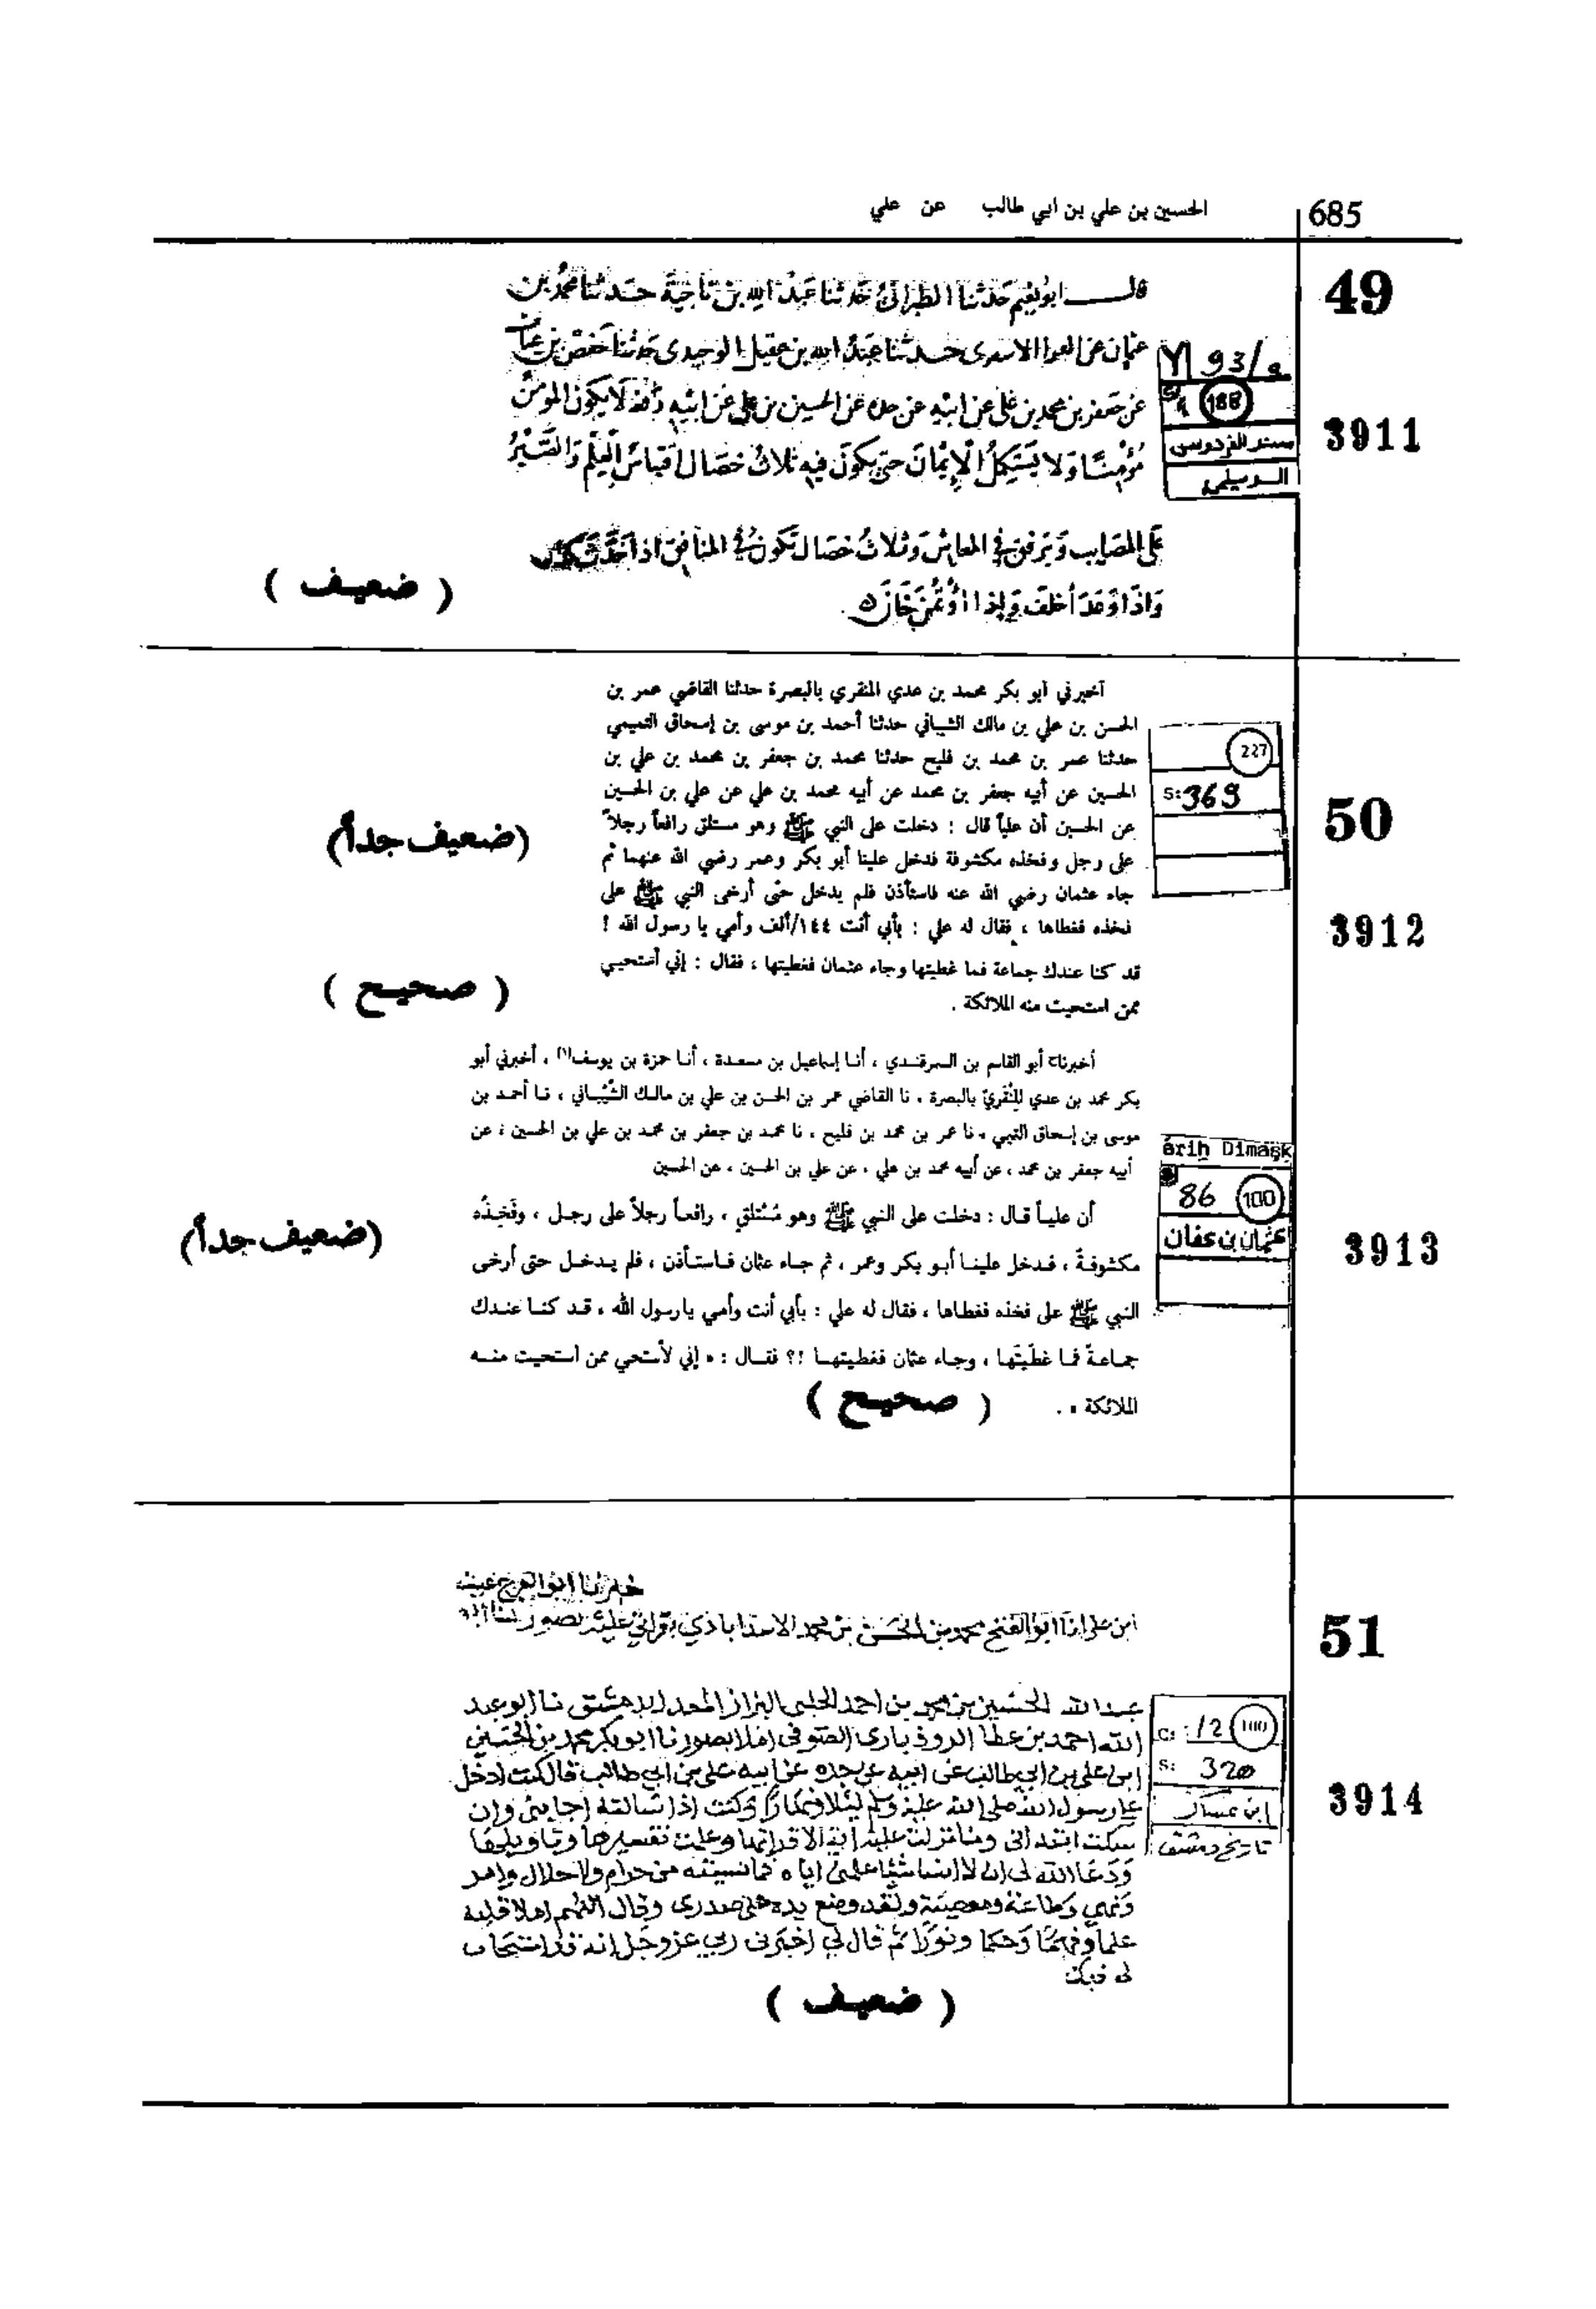 685
الحسين بن علي بن ابي طالب عن علي
49
قال ابو نعيم حدثنا الطبراني حدثنا عبد الله بن ناجية حدثنا محمد بن
عثمان حدثنا عبد الله بن عقيل حدثنا حفص بن
93/a
188
3911
مسند الفردوس
الديلمي
عن جعفر بن محمد بن علي عن ابيه عن جده عن الحسين بن علي عن ابيه رفعه لا يكون المومن
مُؤْمِنًا وَلا يَسْتَكْمِلُ الْإِيْمَانَ حَتَّى يَكُونَ فِيهِ ثلاثُ خِصَال اقتباسُ العِلْمِ وَالصَّبْرُ
عَلى المصَايب وَتَرفق في المعاش وثلاثُ خصَال تكونُ في المنافق اذا حَدَّثَ كذب
وَاذَا وَعَدَ أخلفَ وَإذا اؤتُمنَ خَانَ
( ضعيف )
أخبرني أبو بكر محمد بن عدي المنقري بالبصرة حدثنا القاضي عمر بن
الحسن بن علي بن مالك الشيباني حدثنا أحمد بن موسى بن إسحاق التميمي
حدثنا عمر بن محمد بن فليح حدثنا محمد بن جعفر بن محمد بن علي بن
الحسين عن أبيه جعفر بن محمد عن أبيه محمد بن علي عن علي بن الحسين
عن الحسين أن علياً قال : دخلت على النبي ﷺ وهو مستلق رافعاً رجلاً
على رجل وفخذه مكشوفة فدخل علينا أبو بكر وعمر رضي الله عنهما ثم
جاء عثمان رضي الله عنه فاستأذن فلم يدخل حتى أرخى النبي ﷺ على
فخذه فغطاها ، فقال له علي : بأبي أنت ١٤٤/ألف وأمي يا رسول الله !
قد كنا عندك جماعة فما غطيتها وجاء عثمان فغطيتها ، فقال : إني أستحيي
ممن استحيت منه الملائكة .
227
S: 369
50
3912
(ضعيف جداً)
( صحيح )
أخبرناح أبو القاسم بن السمرقندي ، أنا إسماعيل بن مسعدة ، أنا حمزة بن يوسف(١) ، أخبرني أبو
بكر محمد بن عدي المِنْقَريّ بالبصرة ، نا القاضي عمر بن الحسن بن علي بن مالك الشَّيْباني ، نا أحمد بن
موسى بن إسحاق التميمي ، نا عمر بن محمد بن فليح ، نا محمد بن جعفر بن محمد بن علي بن الحسين ، عن
أبيه جعفر بن محمد ، عن أبيه محمد بن علي ، عن علي بن الحسين ، عن الحسين
أن عليـاً قـال : دخلت على النبي ﷺ وهو مُسْتلقٍ ، رافعـاً رجلاً على رجـل ، وفَخِـذُه
مكشوفةٌ ، فـدخل علينـا أبـو بكر وعمر ، ثم جـاء عثمان فـاستـأذن ، فلم يـدخـل حتى أرخى
النبي ﷺ على فخذه فغطاها ، فقال له علي : بأبي أنت وأمي يا رسول الله ، قـد كنـا عنـدك
جمـاعـةً فمـا غطَّيْتَهـا ، وجـاء عثمان فغطيتهـا !؟ فقـال : « إني لأستحي ممن استحيت منـه
الملائكة » .
érih Dimaşk
86 100
عثمان بن عفان
3913
(ضعيف جداً)
( صحيح )
51
اخبرنا ابو الفرج غيث
ابن علي انا ابو الفتح محمد بن الحسن بن محمد الاسداباذي بقراتي عليه بصور انا ابو
عبد الله الحسين بن محمد بن احمد الحلبي البزاز المعدل بدمشق نا ابو عبد
الله احمد بن عطا الروذباري الصوفي املا بصور نا ابو بكر محمد بن الحسين
ابن علي بن ابي طالب عن ابيه عن جده عن ابيه علي بن ابي طالب قال كنت ادخل
على رسول الله صلى الله عليه وسلم ليلا ونهارا وكنت اذا سالته اجابني وان
سكت ابتداني وما نزلت عليه اية الا قراتها وعلمت تفسيرها وتاويلها
وَدَعَا الله لي ان لا انسا شيئا علمني اياه فما نسيته من حرام ولا حلال وامر
ونهي وطاعة ومعصية ولقد وضع يده على صدري وقال اللهم املا قلبه
علما وفهما وحكما ونورا ثم قال لي اخبرني ربي عز وجل انه قد استجاب
لي فيك
C: 12 100
S: 320
ابن عساكر
تاريخ دمشق
3914
( ضعيف )